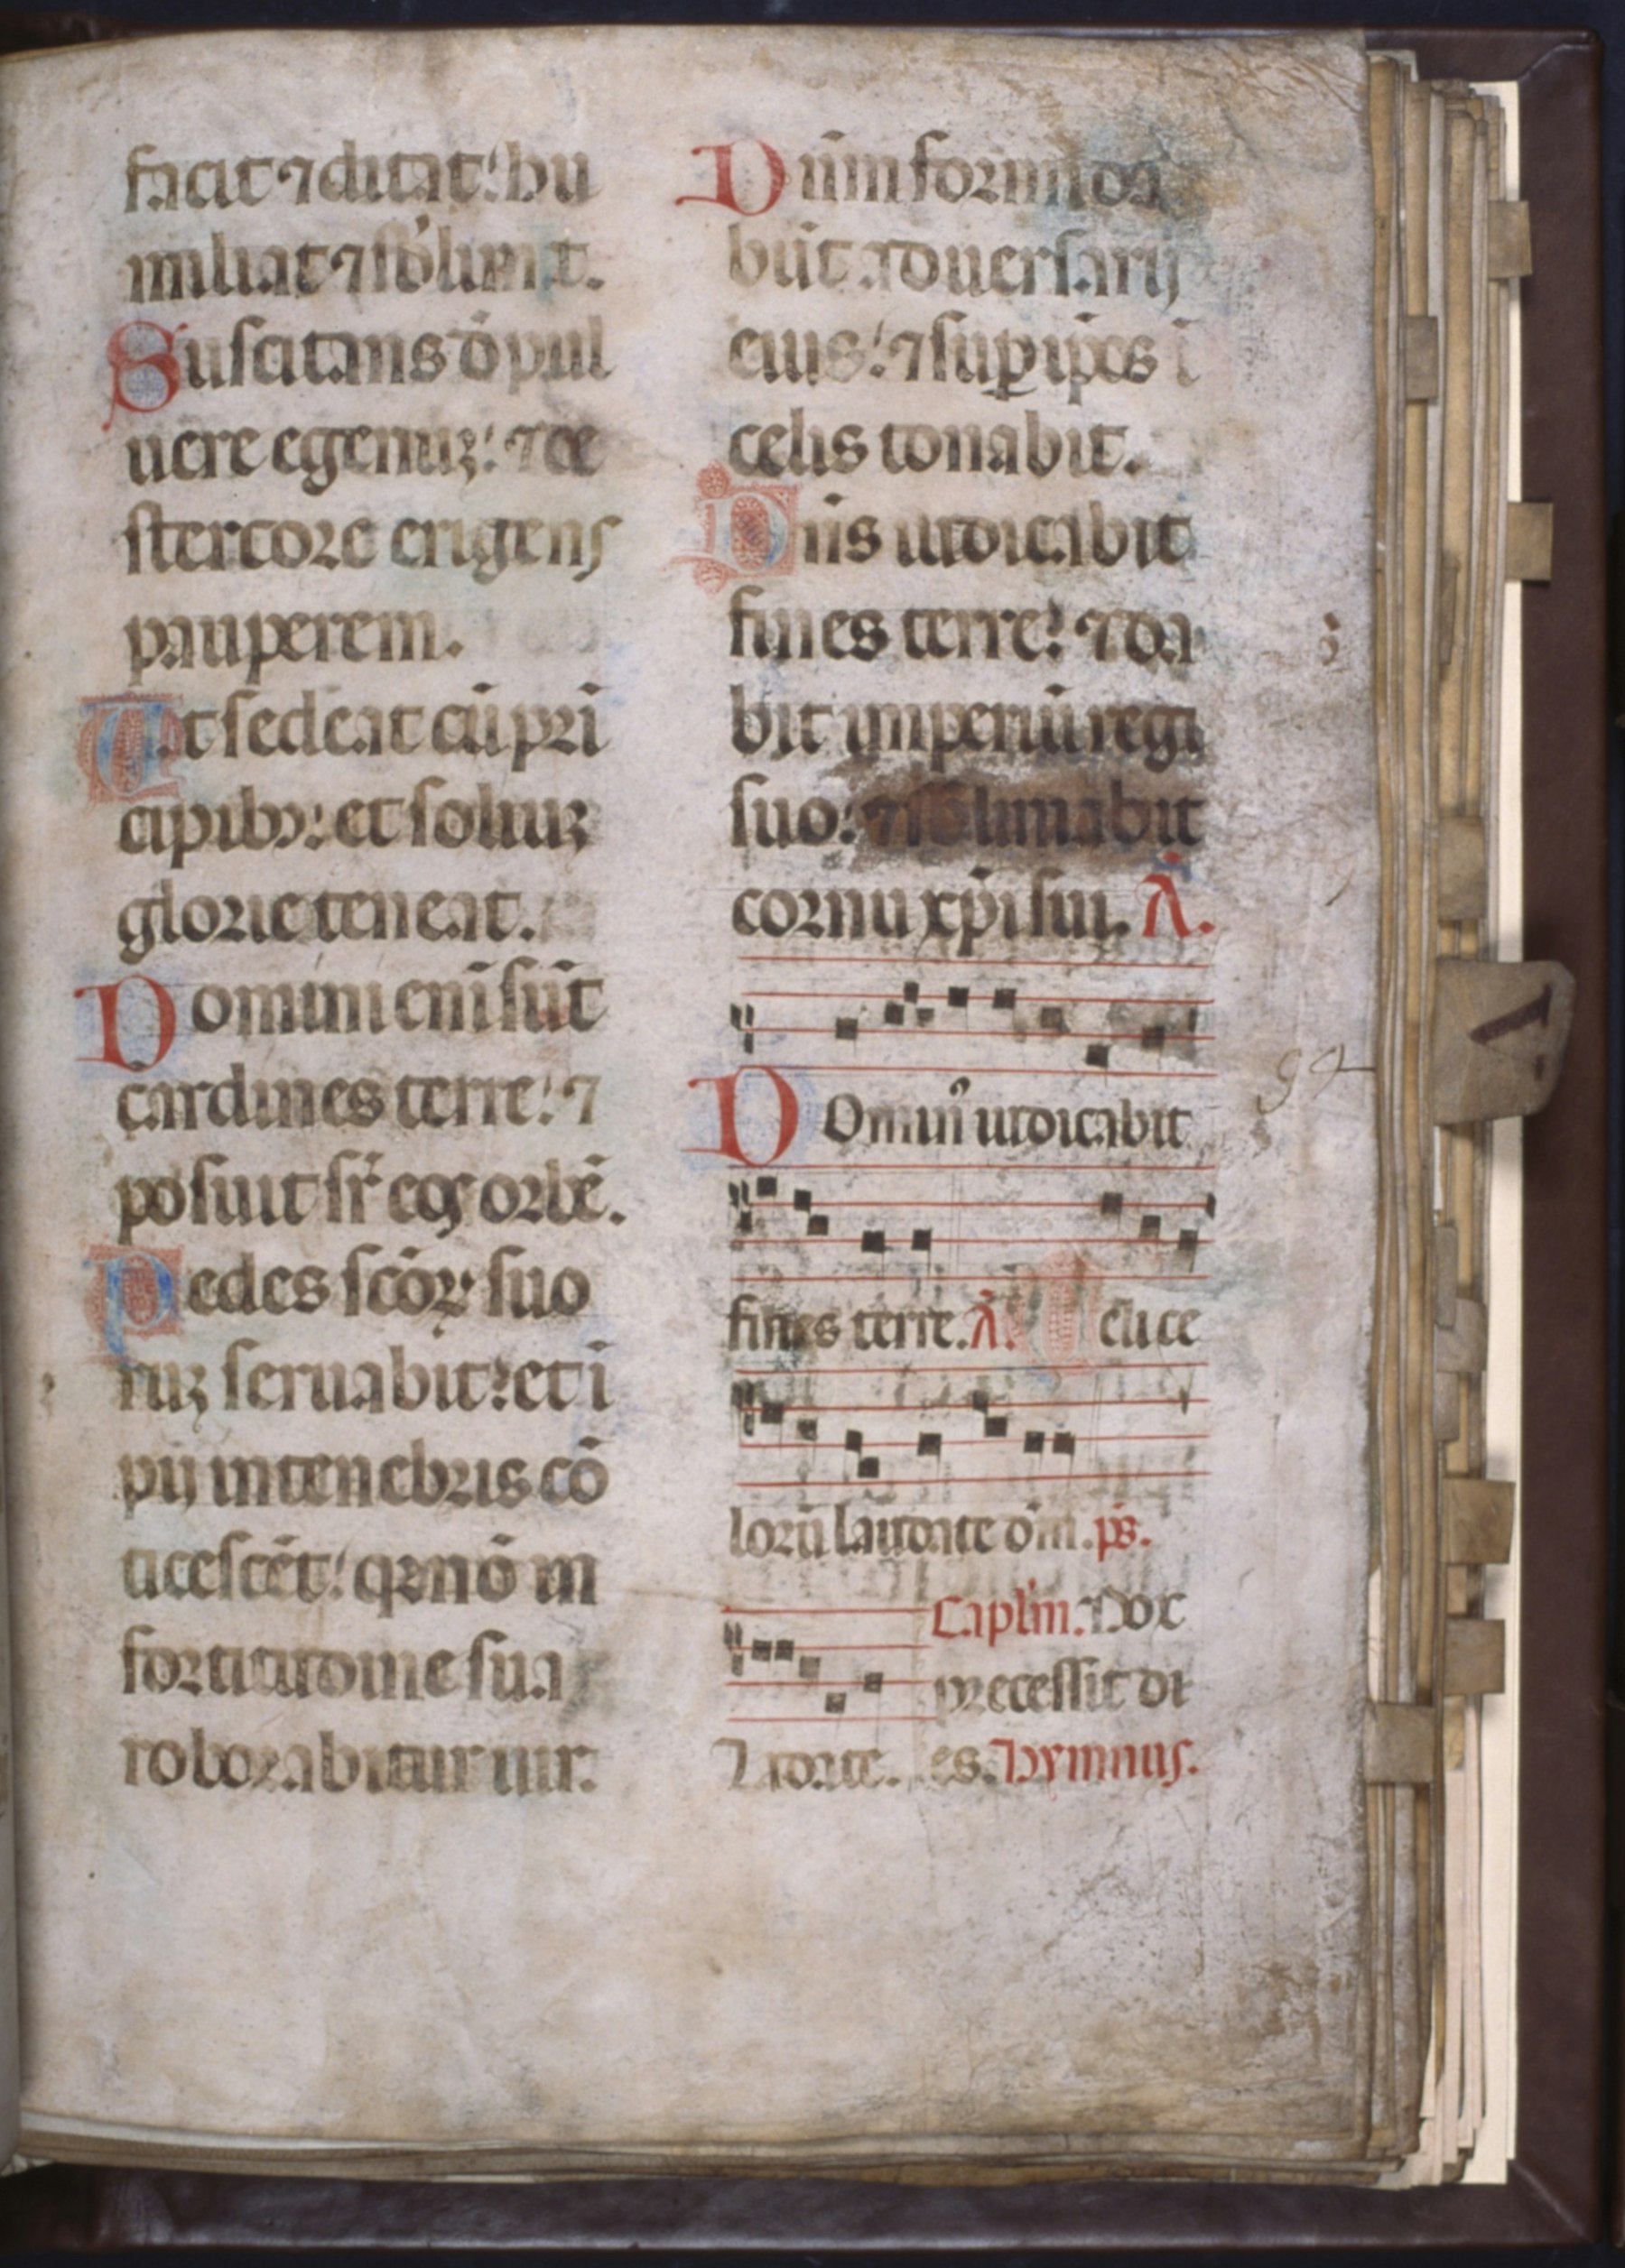 facit ⁊ ditat: hu
miliat ⁊ sb̾limat.
Suscitans dō pul
uere egenuꝫ: ⁊ de
stercore erigens
pauperem.
Ut sedeat cū pri
cipibꝫ: et soliuꝫ
glorie teneat.
Domini eni̅ su̅t
cardines terre: ⁊
posuit sr̄ eos orbē.
Pedes sc̄oꝝ suo
ruꝫ seruabit: et i̅
pij in tenebris cō
ticescēt: qꝛ nō in
fortitudine sua
roborabitur uir.
Dn̄m formida
bu̅t aduersarij
eius: ⁊ suꝑ ip̄os i̅
celis tonabit.
Dn̄s iudicabit
fines terre: ⁊ da
bit imperiū regi
suo: ⁊ sb̾limabit
cornu xp̄i sui. A̅.
Dominꝰ iudicabit
fines terre. A̅. De ce
loru̅ laudate dn̄m. ps̄.
Caplm̄. Nox
precessit di
Laudate. es. Hymnus.
99